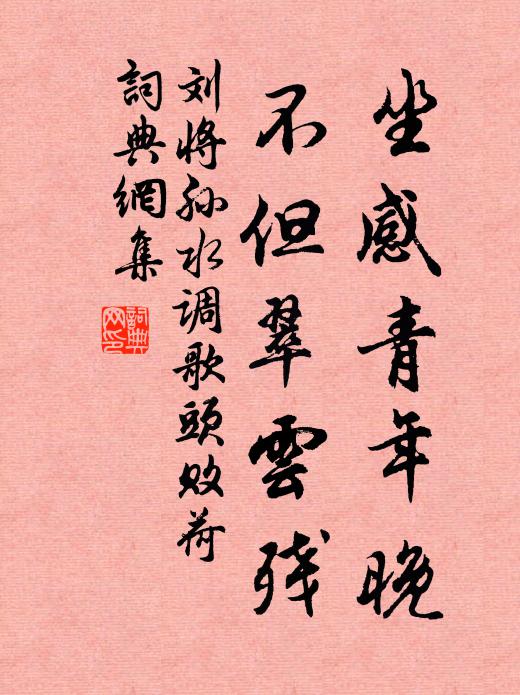 坐感青年晚
不但翠雲残
刘將孙水调歌頭败荷
詞典網集
詞典网印